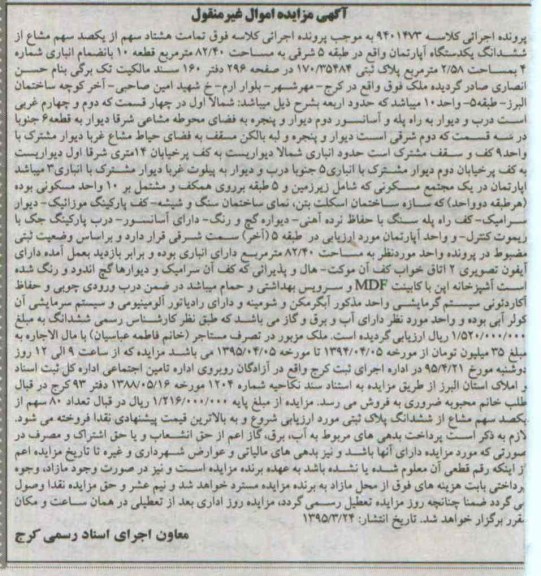 آگهی مزایده اموال غیرمنقول
پرونده اجرائی کلاسه ۹۴۰۱۴۷۳ به موجب پرونده اجرائی کلاسه فوق تمامت هشتاد سهم از یکصد سهم مشاع از
ششدانگ یکدستگاه آپارتمان واقع در طبقه ۵ شرقی به مساحت ۸۲/۴۰ مترمربع قطعه ۱۰ بانضمام انباری شماره
۴ بمساحت ۲/۵۸ مترمربع پلاک ثبتی ۱۷۰/۳۵۴۸۴ در صفحه ۲۹۶ دفتر ۱۶۰ سند مالکیت تک برگی بنام حسن
انصاری صادر گردیده ملک فوق واقع در کرج- مهرشهر- بلوار ارم-خ شهید امین صاحبی- آخر کوچه ساختمان
البرز- طبقه۵- واحد۱۰ میباشد که حدود اربعه بشرح ذیل میباشد: شمالا اول در چهار قسمت که دوم و چهارم غربی
است درب و دیوار به راه پله و آسانسور دوم دیوار و پنجره به فضای محوطه مشاعی شرقا دیوار به قطعه۶ جنوبا
در سه قسمت که دوم شرقی است دیوار و پنجره و لبه بالکن مسقف به فضای حیاط مشاع غربا دیوار مشترک با
واحد۹ کف و سقف مشترک است حدود انباری شمالا دیواریست به کف پرخیابان ۱۴متری شرقا اول دیواریست
به کف پرخیابان دوم دیوار مشترک با انباری۵ جنوبا درب و دیوار به پیلوت غربا دیوار مشترک با انباری۳ میباشد
آپارتمان در یک مجتمع مسکونی که شامل زیرزمین و ۵ طبقه برروی همکف و مشتمل بر ۱۰ واحد مسکونی بوده
(هرطبقه دوواحد) که سازه ساختمان اسکلت بتن، نمای ساختمان سنگ و شیشه- کف پارکینگ موزائیک- دیوار
سرامیک- کف راه پله سنگ با حفاظ نرده آهنی- دیواره گچ و رنگ- دارای آسانسور- درب پارکینگ جک با
ریموت کنترل- و واحد آپارتمان مورد ارزیابی در طبقه ۵ (آخر) سمت شرقی قرار دارد و براساس وضعیت ثبتی
مضبوط در پرونده واحد موردنظر به مساحت ۸۲/۴۰ مترمربع دارای انباری بوده و برابر بازدید بعمل آمده دارای
آیفون تصویری ۲ اتاق خواب کف آن موکت- هال و پذیرائی که کف آن سرامیک و دیوارها گچ اندود و رنگ شده
است آشپزخانه اپن با کابینت MDF و سرویس بهداشتی و حمام میباشد در ضمن درب ورودی چوبی و حفاظ
آکاردئونی سیستم گرمایشی واحد مذکور آبگرمکن و شومینه و دارای رادیاتور آلومینیومی و سیستم سرمایشی آن
کولر آبی بوده و واحد مورد نظر دارای آب و برق و گاز می باشد که طبق نظر کارشناس رسمی ششدانگ به مبلغ
۱/۵۲۰/۰۰۰/۰۰۰ ریال ارزیابی گردیده است. ملک مزبور در تصرف مستاجر (خانم فاطمه عباسیان) با مال الاجاره به
مبلغ ۳۵ میلیون تومان از مورخه ۱۳۹۴/۰۴/۰۵ تا مورخه ۱۳۹۵/۰۴/۰۵ می باشد مزایده که از ساعت ۹ الی ۱۲ روز
دوشنبه مورخ ۹۵/۴/۲۱ در اداره اجرای ثبت کرج واقع در آزادگان روبروی اداره تامین اجتماعی اداره کل ثبت اسناد
و املاک استان البرز از طریق مزایده به استناد سند نکاحیه شماره ۱۲۰۴ مورخه ۱۳۸۸/۰۵/۱۶ دفتر ۹۳ کرج در قبال
طلب خانم محبوبه ضروری به فروش می رسد. مزایده از مبلغ پایه ۱/۲۱۶/۰۰۰/۰۰۰ ریال در قبال تعداد ۸۰ سهم از
یکصد سهم مشاع از ششدانگ پلاک ثبتی مورد ارزیابی شروع و به بالاترین قیمت پیشنهادی نقدا فروخته می شود.
لازم به ذکر است پرداخت بدهی های مربوط به آب، برق، گاز اعم از حق انشعاب و یا حق اشتراک و مصرف در
صورتی که مورد مزایده دارای آنها باشد و نیز بدهی های مالیاتی و عوارض شهرداری و غیره تا تاریخ مزایده اعم
از اینکه رقم قطعی آن معلوم شده یا نشده باشد به عهده برنده مزایده است و نیز در صورت وجود مازاد، وجوه
پرداختی بابت هزینه های فوق از محل مازاد به برنده مزایده مسترد خواهد شد و نیم عشر و حق مزایده نقدا وصول
می گردد ضمنا چنانچه روز مزایده تعطیل رسمی گردد، مزایده روز اداری بعد از تعطیلی در همان ساعت و مکان
مقرر برگزار خواهد شد. تاریخ انتشار: ۱۳۹۵/۳/۲۴
معاون اجرای اسناد رسمی کرج